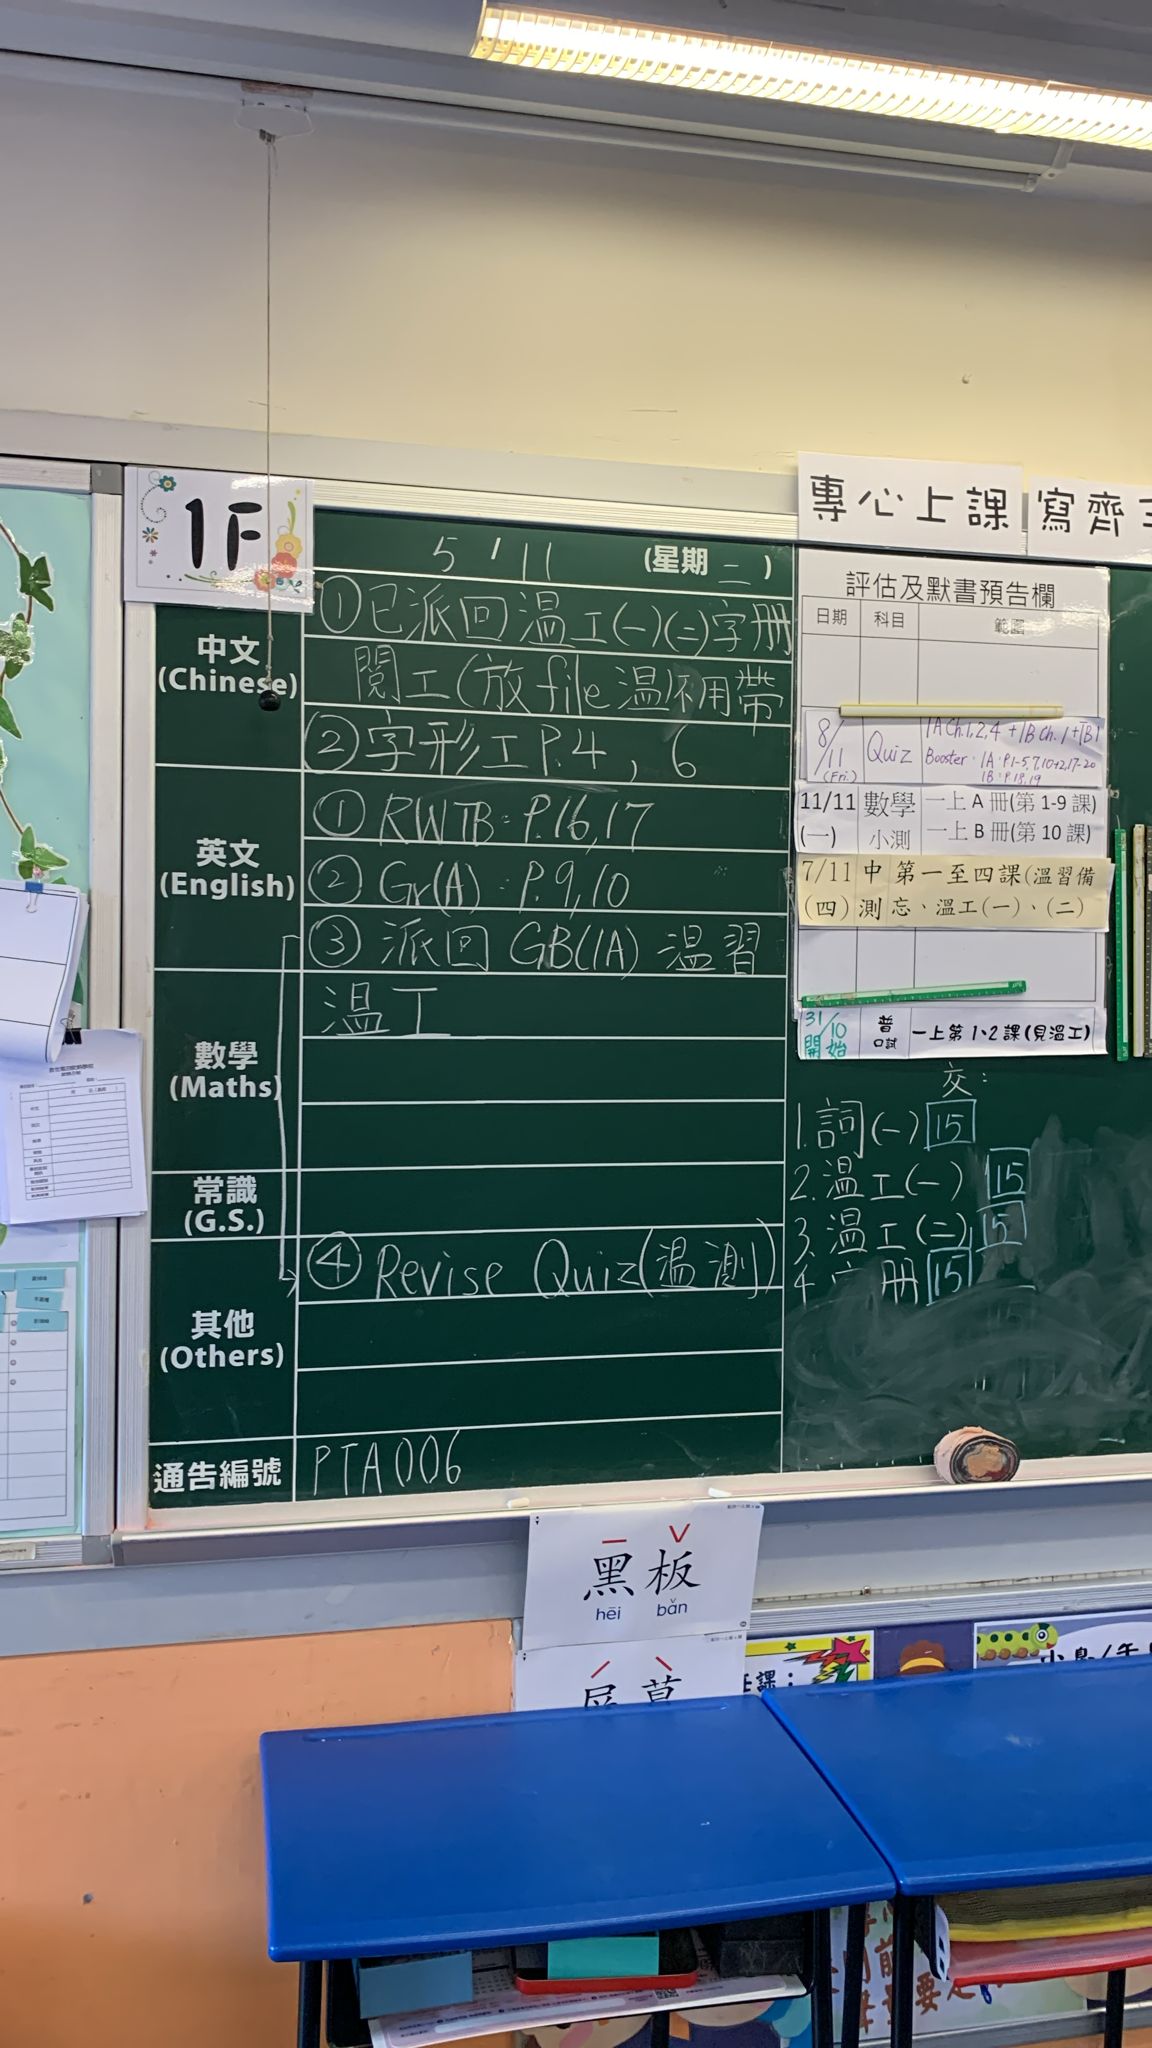 1F
5 / 11 (星期 二 )
中文
(Chinese)
①已派回温工(一)(二)字册
閱工(放file温)不用帶
②字形工P.4 , 6
英文
(English)
①RWTB:P.16,17
②Gr(A):P.9,10
③派回 GB(1A) 温習
數學
(Maths)
温工
常識
(G.S.)
其他
(Others)
④Revise Quiz(温測)
通告編號
PTA006
專心上課
寫齊
評估及默書預告欄
日期 科目 範圍
8/11 (Fri.) Quiz 1A Ch.1,2,4 + 1B Ch.1
Booster: 1A: P.1-5,7,10+2,17-20
1B: P.18,19
11/11 數學 一上 A 冊(第 1-9 課)
(一) 小測 一上 B 冊(第 10 課)
7/11 中 第一至四課(溫習備
(四) 測 忘、溫工(一)、(二)
31/10 開始 普 口試 一上第1、2課(見溫工)
交:
1.詞(一) 15
2.温工(一) 15
3.温工(二) 15
4. 册 15
黑板
hēi bǎn